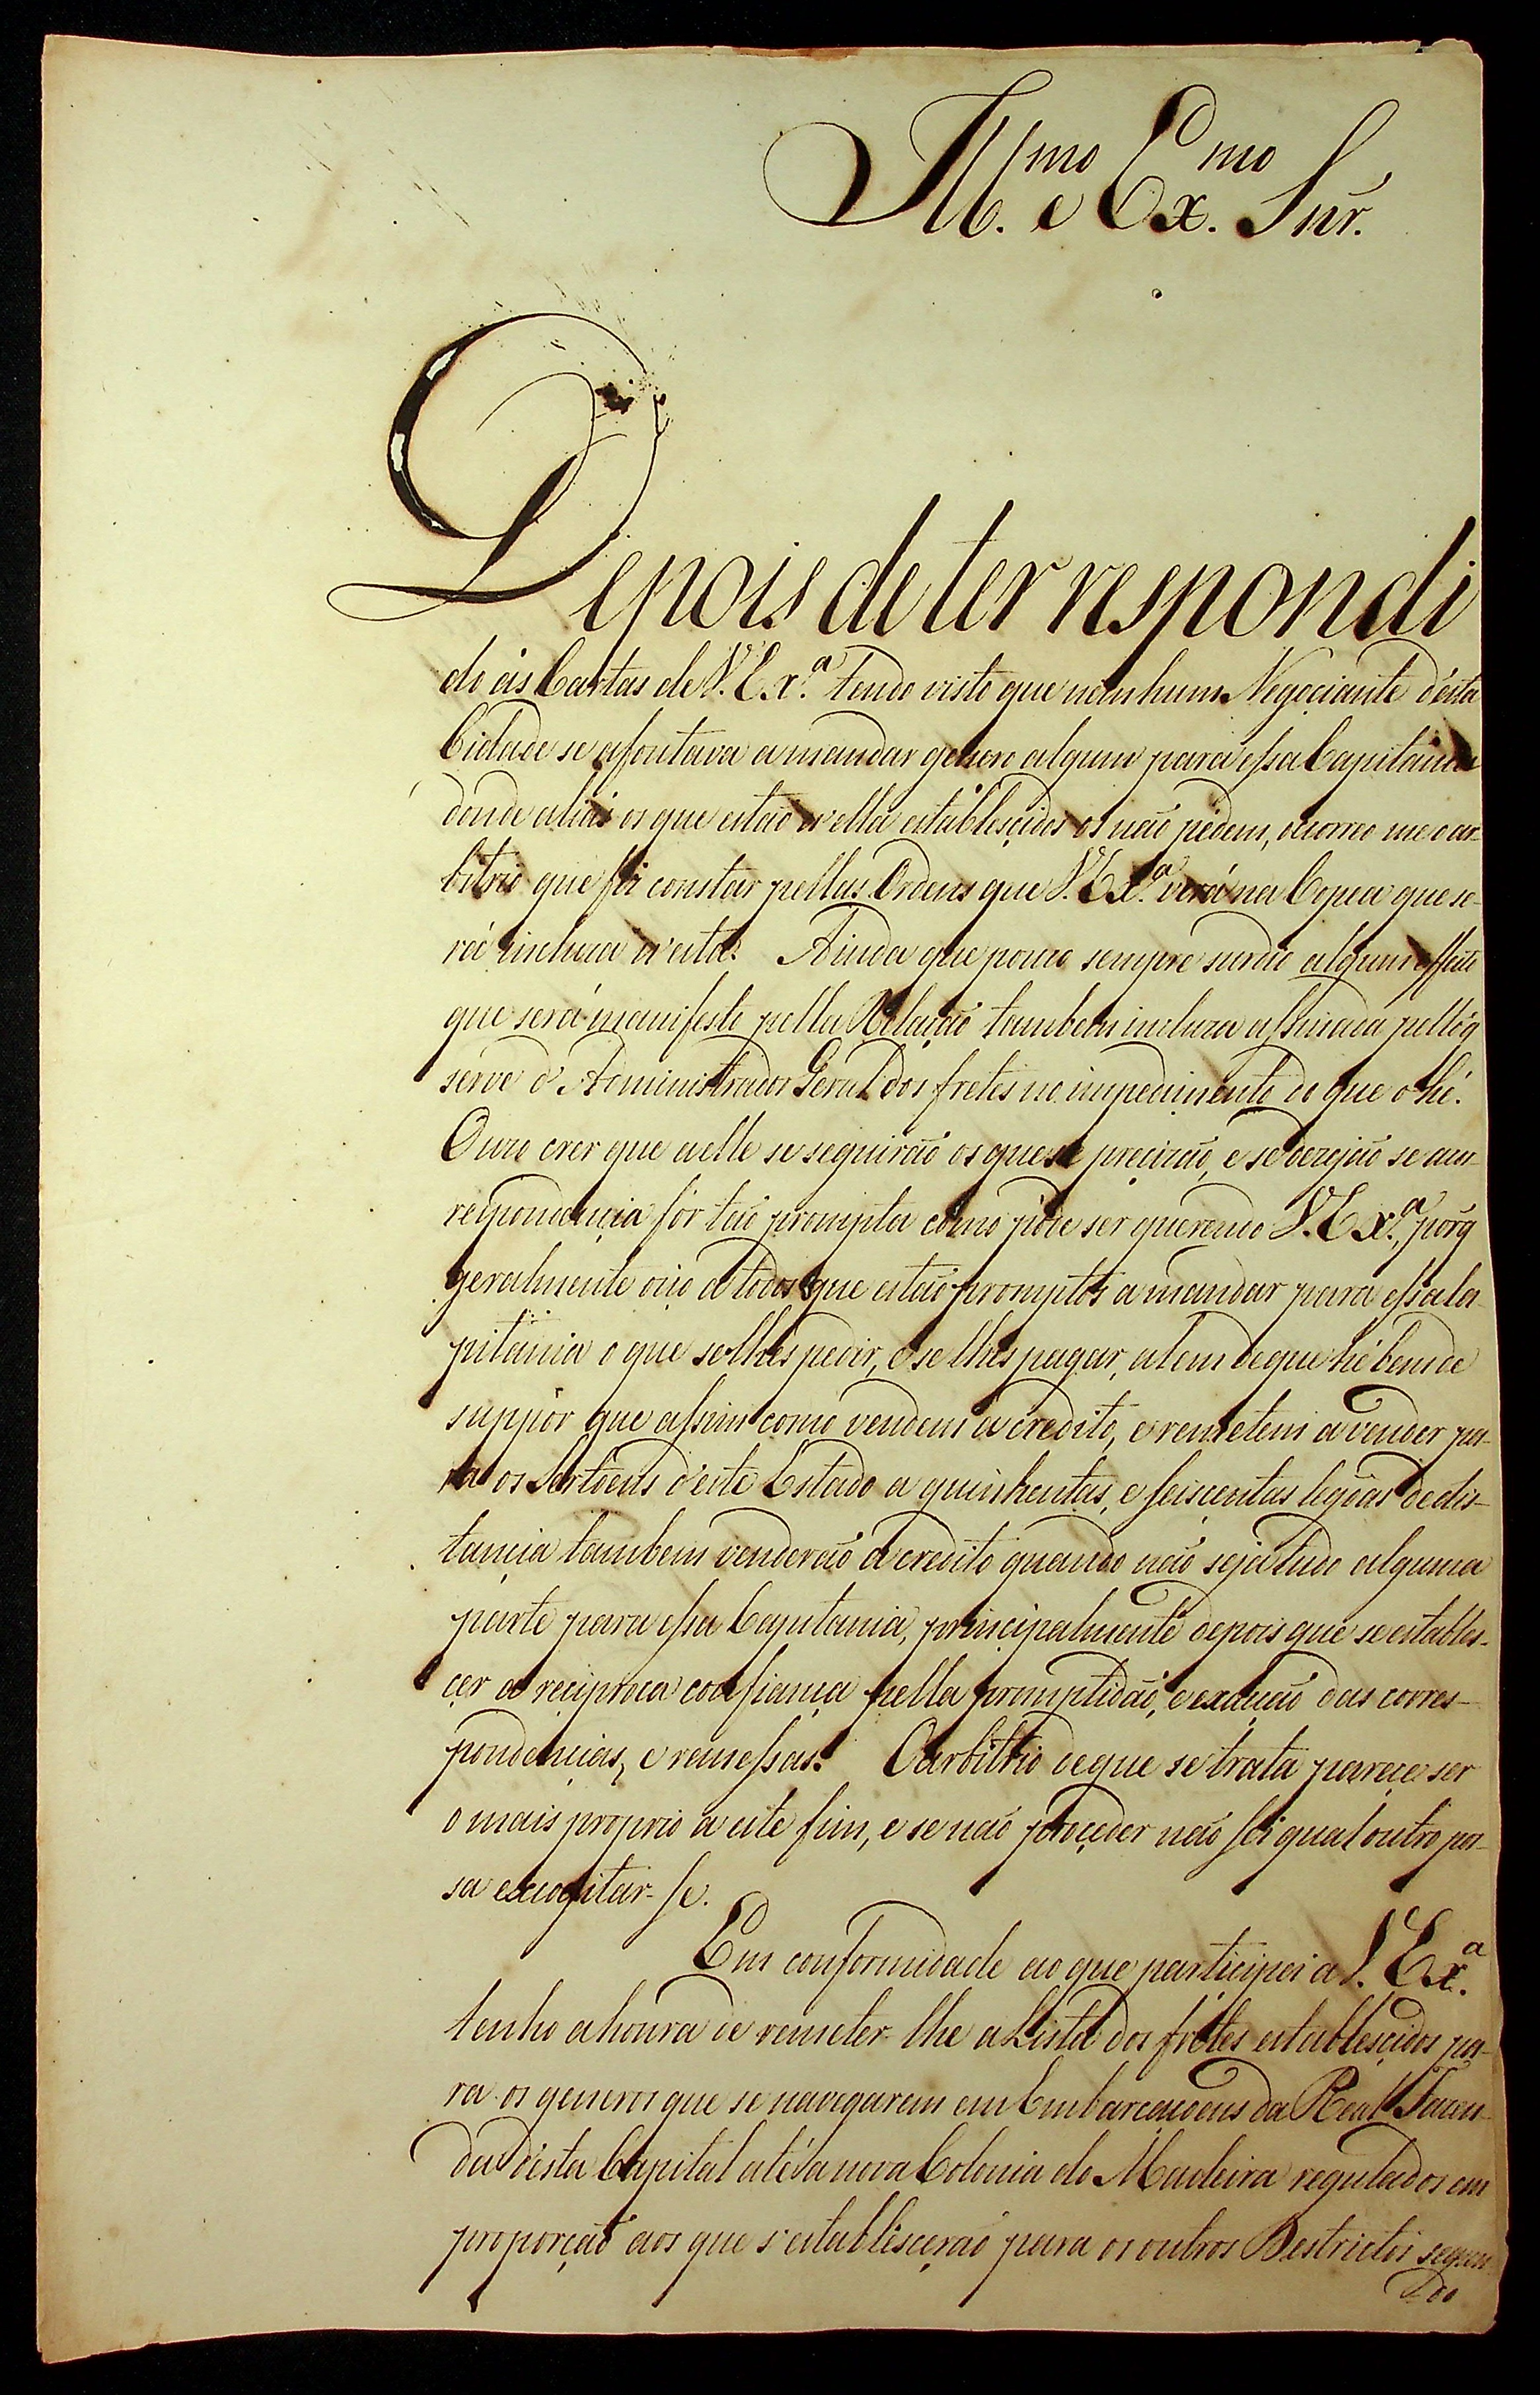 Ill.mo e Ex.mo Snr.
Depois de ter respondi
do ás Cartas de V. Ex.ª tendo visto que nenhum Negociante d'esta
Cidade se afoutava a mandar genero algum para essa Capitania
donde aliás os que estão n'ella establescidos os não pedem, ocorreo me o ar-
bitrio que fiz constar pellas Ordens que V. Ex.ª verá na Copea que se-
rá incluza n'esta. Ainda que pouco sempre surdio algum effeito
que será manifesto pella Relação tambem incluza assinada pello q̃
serve d'Administrador Geral dos fretes no impedimento do que o hé.
Ouzo crer que a elle se seguirão os que se precizão, e se dezejão se a cor-
respondencia fôr tão prompta como póde ser querendo V. Ex.ª, porq̃
geralmente oiço a todos que estão promptos a mandar para essa Ca-
pitania o que se lhes pedir, e se lhes pagar, alem de que hé bem de
suppôr que assim como vendem a credito, e remetem a vender pa-
ra os Sertoens d'este Estado a quinhentas, e seiscentas legoas de dis-
tancia tambem venderão a credito quando não seja tudo alguma
parte para essa Capitania, principalmente depois que se estables-
cer a reciproca confiança pella promptidão, e exacção das corres-
pondencias, e remessas. O arbitrio de que se trata parece ser
o mais proprio a este fim, e se não proceder não sei qual outro pos-
sa excogitar-se.
Em conformidade ao que participei a V. Ex.ª
tenho a honra de remeter-lhe a Lista dos fretes establescidos pa-
ra os generos que se navegarem em Embarcaçoens da Real Fazen-
da d'esta Capital até a nova Colonia do Madeira regulados em
proporção aos que s'establescerão para os outros Destrictos segun-
do